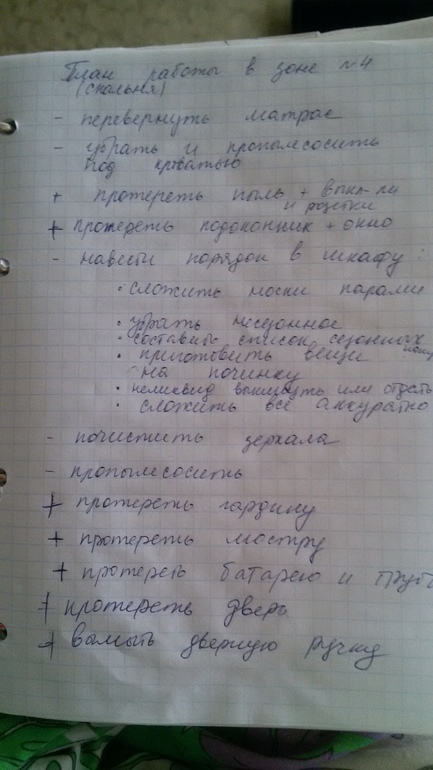 План работы в зоне №4
(спальня)
- перевернуть матрас
- убрать и пропылесосить
под кроватью
+ протереть пыль + выкл-ли
и розетки
+ протереть подоконник + окно
- навести порядок в шкафу:
• сложить носки парами
• убрать несезонное
• составить список сезонных
• приготовить вещи
на починку
• неликвид выкинуть или отдать
• сложить всё аккуратно
- почистить зеркала
- пропылесосить
+ протереть гардину
+ протереть люстру
+ протереть батарею и
+ протереть дверь
+ вымыть дверную ручку